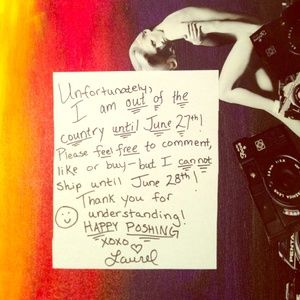 Unfortunately,
I am out of the
country until June 27th!
Please feel free to comment,
like or buy-but I cannot
ship until June 28th!
Thank you for
understanding!
HAPPY POSHING
xoxo
Laurel
PENTAX